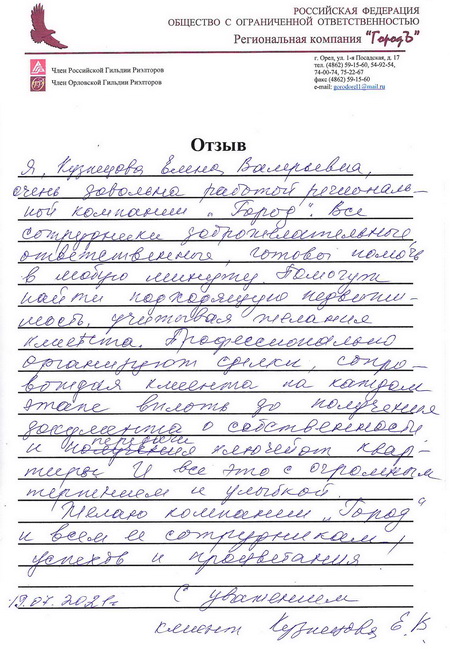 РОССИЙСКАЯ ФЕДЕРАЦИЯ
ОБЩЕСТВО С ОГРАНИЧЕННОЙ ОТВЕТСТВЕННОСТЬЮ
Региональная компания "ГородЪ"
г. Орел, ул. 1-я Посадская, д. 17
тел. (4862) 59-15-60, 54-92-54,
74-00-74, 75-22-67
факс (4862) 59-15-60
e-mail: gorodorel1@mail.ru
Член Российской Гильдии Риэлторов
Член Орловской Гильдии Риэлторов
Отзыв
Я, Кузнецова Елена Валерьевна,
очень довольна работой региональ-
ной компании „Город". Все
сотрудники доброжелательные
ответственные, готовы помочь
в любую минуту. Помогут
найти подходящую недвижи-
мость, учитывая желания
клиента. Профессионально
организуют сделки, сопро-
вождая клиента на каждом
этапе вплоть до получения
документа о собственности
передачи
и получения ключей от квар-
тиры. И все это с огромным
терпением и улыбкой.
Желаю компании „Город"
и всем ее сотрудникам,
успехов и процветания
19.07.2021г С уважением
клиент Кузнецова Е.В